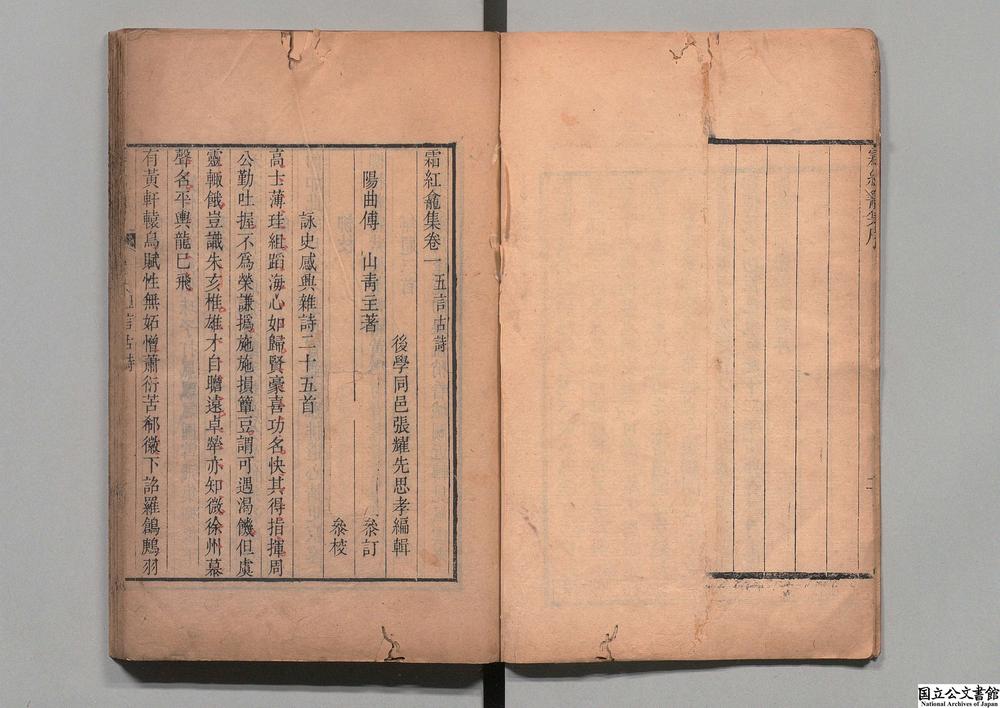 霜紅龕集序
霜紅龕集卷一 五言古詩
後學同邑張耀先思孝編輯
陽曲傅 山青主著
叅訂
叅校
詠史感興雜詩二十五首
高士薄珪組蹈海心如歸賢豪喜功名快其得指揮周
公勤吐握不爲榮謙撝施施損簞豆謂可遇渴饑但虞
靈輙餓豈識朱亥椎雄才自瞻遠卓犖亦知微徐州慕
聲名平輿龍已飛
有黃軒轅鳥賦性無妬憎蕭衍苦郗徽下詔羅鶬鷓羽
五言古詩
国立公文書館
National Archives of Japan